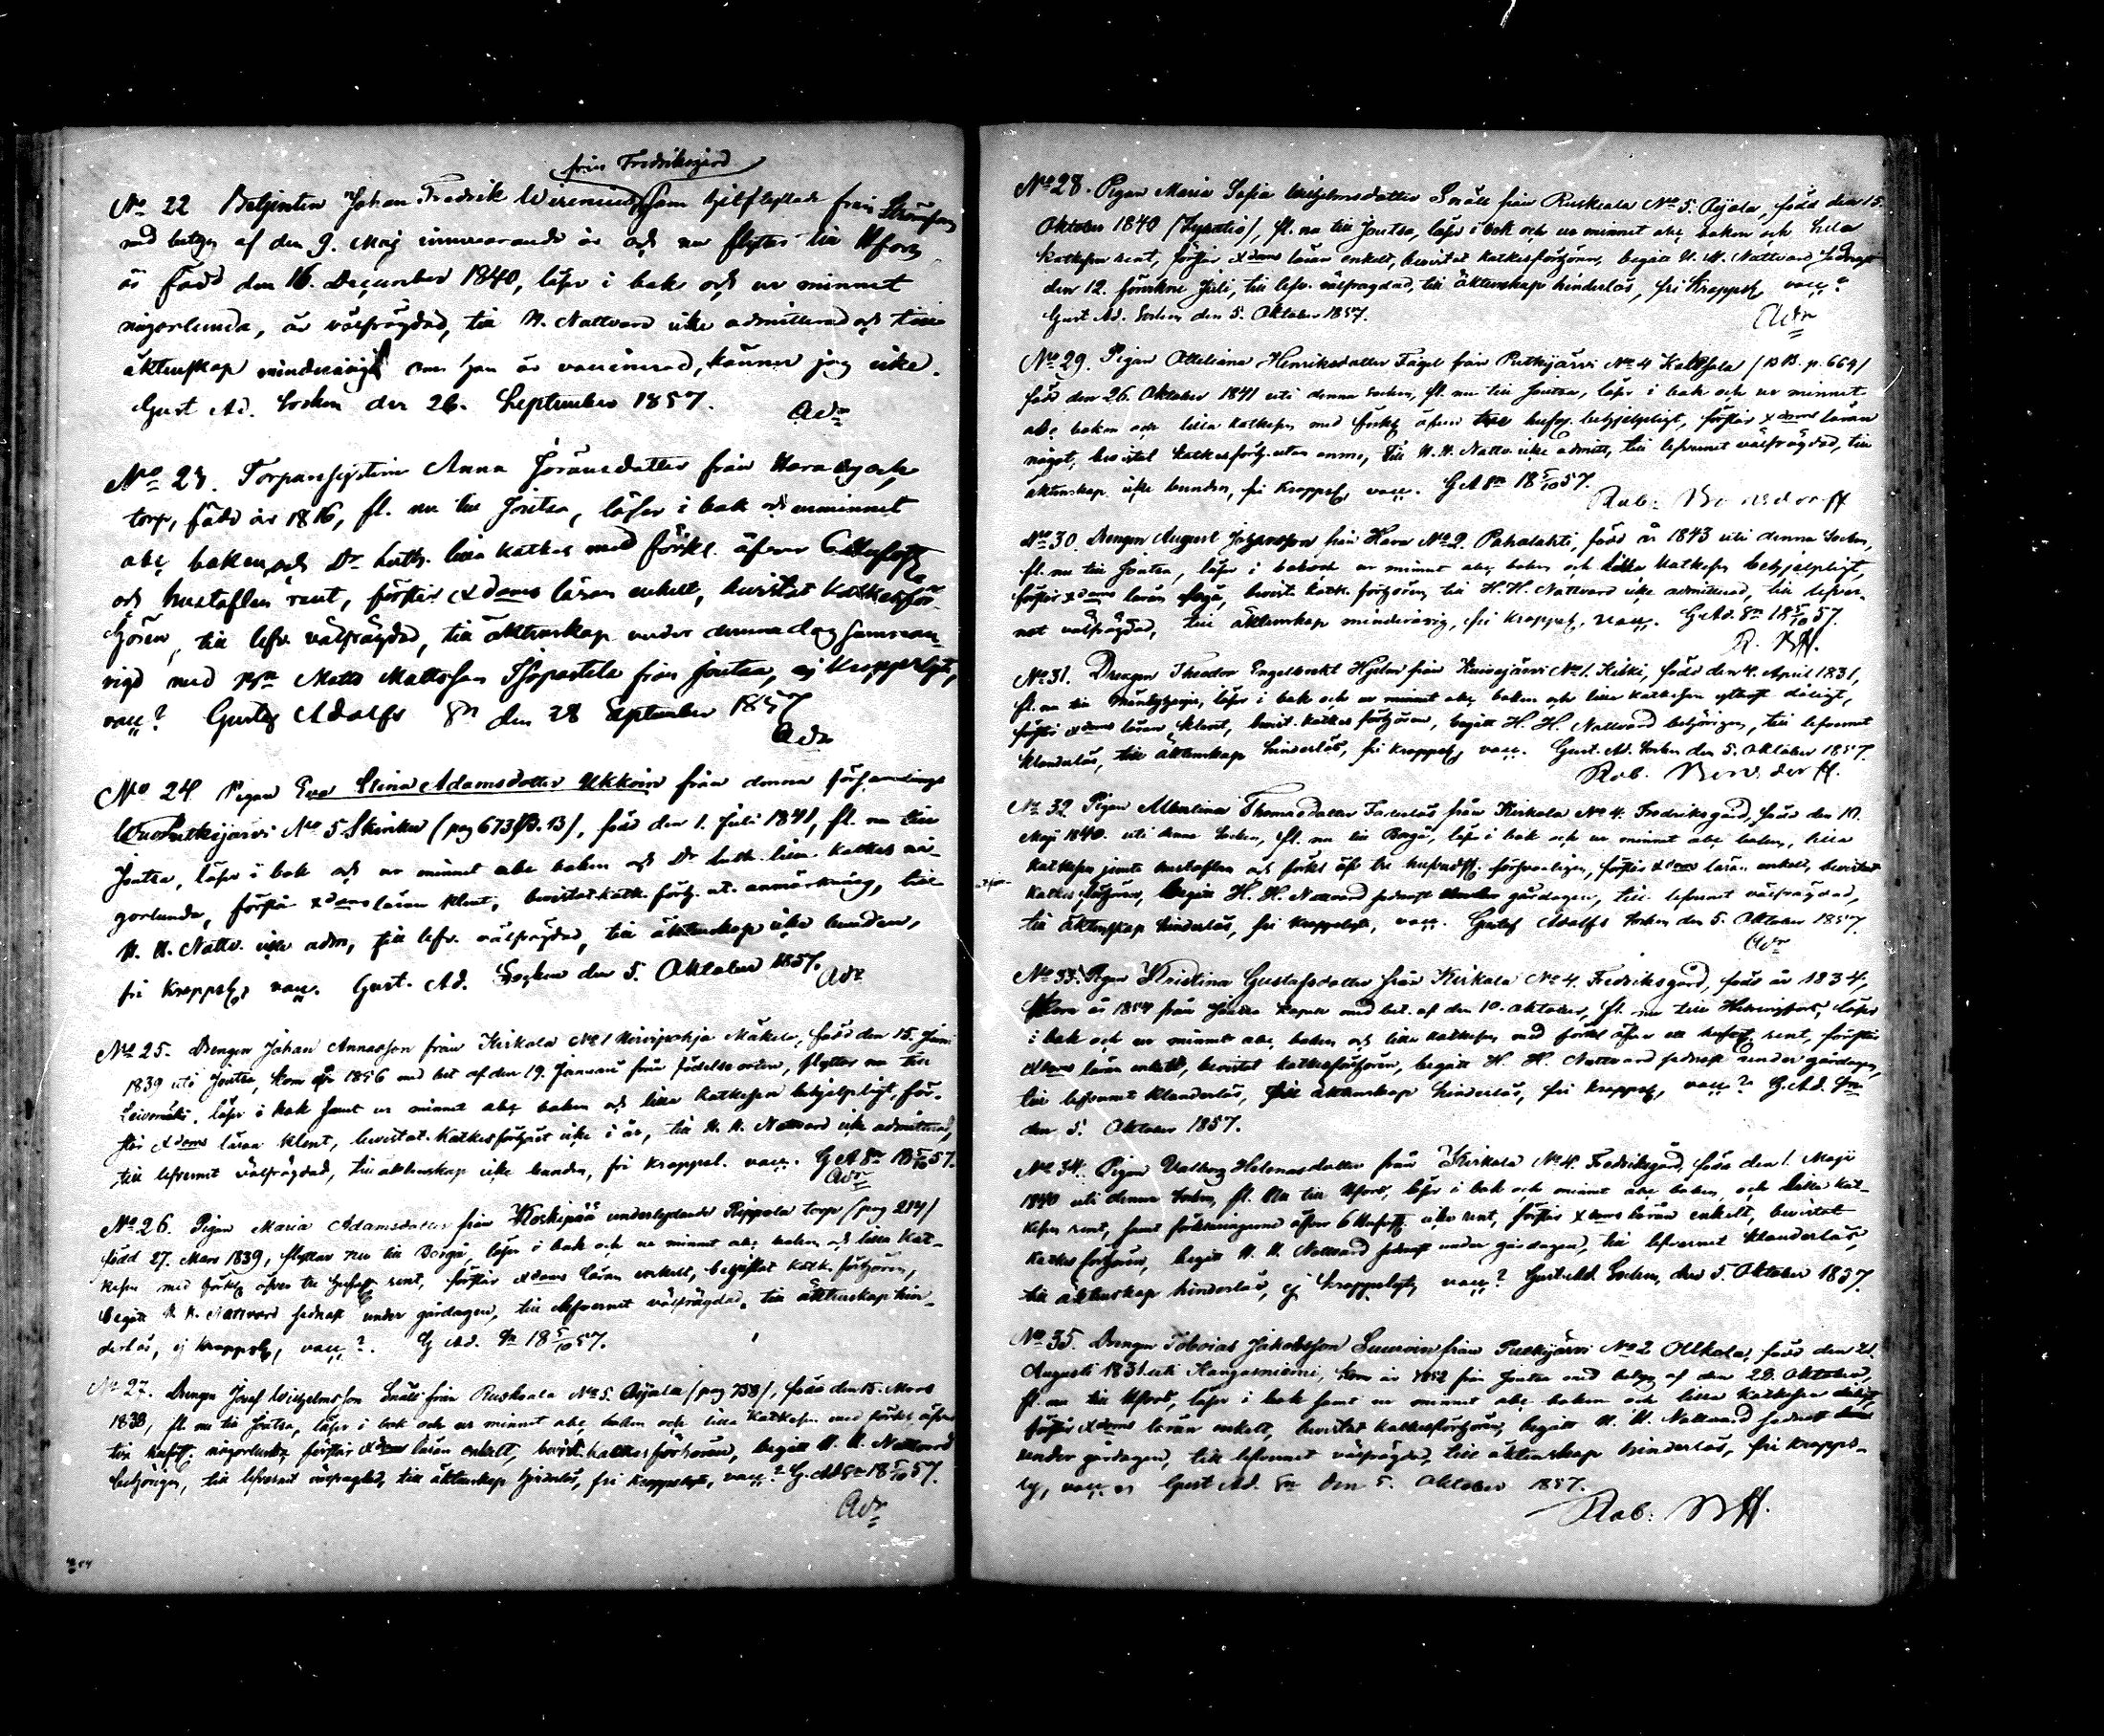 från Fredriksgård
No 22 Betjenten Johan Fredrik Wirenius som hitflyttade från Strömfors
med betyg af den 9. Maj innevarande år och nu flyttar till Hfors
är född den 16. December 1840, läser i bok och ur minnet
någorlunda, är välfrägdad, till H. Nattvard icke admitterad och till
äktenskap minderårig om han är vaccinerad, känner jag icke.
Gust Ad. Socken den 26. September 1857.
Adr
No 23. Torpareenkan Anna Jöransdotter från
torp, född år 1816, fl. nu till Joutsa, läser i bok och ur minnet
abc boken och Dr Luth. lilla katkes med förkl. öfver
och hustaflan rent, förstår Xdoms läran enkelt, bevistat katkesför-
hören, till lefv. välfrägdad, till äktenskap under denna dag samman-
vigd med Matts Mattsson från Joutsa, ej kopperlagd,
vacc? Gustaf Adolfs Sn den 28 September 1857
Adr
No 24 Pigan Eva Stina Adamsdotter Ukkoin från denna församlings
Putkijärvi No 5 Skinku (pag 673 13), född den 1. Juli 1841, fl. nu till
Joutsa, läser i bok och ur minnet abc boken och Dr Luth. lilla katkes nå-
gorlunda, förstår Xdoms läran klent, bevistat katk. förh. ut. anmärkning, till
H. H. Nattv. icke adm, till lefv. välfrägdad, till äktenskap icke bunden,
fri kopps, vacc. Gust. Ad. Socken den 5. Oktober 1857.
Adr
No 25. Drengen Johan Annasson från Kirkola No 1 Mäkelä, född den 15. Juni
1839 uti Joutsa, kom år 1856 med bet af den 19. Januari från födelseorten, flyttar nu till
Leivomäki, läser i bok samt ur minnet abc boken och lilla katkesen behjelpligt, för-
står Xdoms läran klent, bevistat katkesförhöret icke i år, till H. H. Nattvard icke admitterad,
till lefvernet välfrägdad, till äktenskap icke bunden, fri koppel. vacc. G A Sn 18 5/10 57.
Adr
No 26. Pigan Maria Adamsdotter från Koskipää underlydande Rippola torp (pag 214)
född 27. Mars 1839, flyttar nu till Borgå, läser i bok och ur minnet abc boken och lilla kat-
kesen med förkl öfver tre hufsty rent, förstår Xdoms läran enkelt, bevistat katk. förhören,
begått H. H. Nattvard sednast under gårdagen, till lefvernet välfrägdad, till äktenskap hin-
derlös, ej koppel, vacc?. G Ad. Sn 18 5/10 57.
No 27. Drengen Josef Wilhelmsson Snäll från Ruskeala No 5. Ojala (pag 758), född den 15. Mars
1838, fl. nu till Joutsa, läser i bok och ur minnet abc boken och lilla katkesen med förkl öfver
tre hufsty. någorlunda, förstår Xdoms läran enkelt, bevist. katkesförhören, begått H. H. Nattvard
behörigen, till lefvernet välfrägdad, till äktenskap hinderlös, fri koppelagd, vacc? G. Ad Sn 18 5/10 57.
Adr
No 28. Pigan Maria Sofia Wilhelmsdotter Snäll från Ruskeala No 5. Ojala, född den 15.
Oktober 1840, fl. nu till Joutsa, läser i bok och ur minnet abc boken och hela
katkesen rent, förstår Xdoms läran enkelt, bevistat katkesförhören, begått H. H. Nattvard sednast
den 12. förvikne Juli, till lefv. välfrägdad, till äktenskap hinderlös, fri koppel, vacc?
Gust Ad. Socken den 5. Oktober 1857.
Adr
No 29. Pigan Ottiliana Henriksdotter Fågel från Putkijärvi No 4 (p. 664)
född den 26. Oktober 1841 uti denna socken, fl. nu till Joutsa, läser i bok och ur minnet
abc boken och lilla katkesen med förkl öfver tre hufsty. behjelpligt, förstår Xdoms läran
något, bevistat katkesförh. utan anm, till H. H. Nattv. icke admitt, till lefvernet välfrägdad, till
äktenskap icke bunden, fri koppel, vacc. G A Sn 18 5/10 57.
Rob: Bonsdorff
No 30. Drengen August Johansson från Hara No 2 Pahalahti, född år 1843 uti denna socken,
fl. nu till Joutsa, läser i bok och ur minnet abc boken och lilla katkesen behjelpligt,
förstår Xdoms läran föga, bevist. katk. förhören, till H. H. Nattvard icke admitterad, till lefver-
net välfrägdad, till äktenskap minderårig, fri koppel, vacc. G Ad. Sn 18 5/10 57.
R. Bff.
No 31. Drengen Theodor Engelbrekt Hjelm från No 1. född den 4. April 1831,
fl. nu till Mäntyharju, läser i bok och ur minnet abc boken och lilla katkesen ytterst dåligt,
förstår Xdoms läran klent, bevist. katkesförhören, begått H. H. Nattvard behörigen, till lefvernet
klanderlös, till äktenskap hinderlös, fri koppel, vacc. Gust. Ad. Socken den 5. Oktober 1857.
Rob. Bonsdorff.
No 32 Pigan Albertina Thomasdotter från Kirkola No 4. Fredriksgård, född den 10.
Maji 1840. uti denna socken, fl. nu till Borgå, läser i bok och ur minnet abc boken, lilla
katkesen jemte hustaflan och förkl öfv tre hufsty försvarligen, förstår Xdoms läran enkelt, bevistat
katkesförhören, begått H. H. Nattvard sednast under gårdagen, till lefvernet välfrägdad,
till äktenskap hinderlös, fri koppelagd, vacc. Gustaf Adolfs Socken den 5. Oktober 1857.
Adr
No 33. Pigan Kristina Gustafsdotter från Kirkola No 4. Fredriksgård, född år 1834,
kom år 1854 från Joutsa kapell med bet. af den 10. oktober, fl. nu till Helsingfors, läser
i bok och ur minnet abc boken och lilla katkesen med förkl öfver ett hufsty rent, förstår
Xdoms läran enkelt, bevistat katkesförhören, begått H. H. Nattvard sednast under gårdagen,
till lefvernet klanderlös, till äktenskap hinderlös, fri koppel, vacc? G. Ad. Sn
den 5. Oktober 1857.
No 34. Pigan Valborg Helenasdotter från Kirkola No 4. Fredriksgård, född den 1. Maji
1840 uti denna socken, fl. nu till Hfors, läser i bok och minnet abc boken, och lilla kat-
kesen rent, samt förklaringarne öfver 6 hufsty. icke rent, förstår Xdoms läran enkelt, bevistat
katkesförhören, begått H. H. Nattvard sednast under gårdagen, till lefvernet klanderlös,
till äktenskap hinderlös, ej koppelagd, vacc? Gust. Ad. Socken, den 5. Oktober 1857.
No 35. Drengen Tobias Jakobsson Suuroin från Putkijärvi No 2 Ollkala, född den 21.
Augusti 1831 uti Kangasniemi, kom år 1852 från Joutsa med betyg af den 20. Oktober,
fl. nu till Hfors, läser i bok samt ur minnet abc boken och lilla katkesen dåligt,
förstår Xdoms läran enkelt, bevistat katkesförhören, begått H. H. Nattvard sednast
under gårdagen, till lefvernet välfrägdad, till äktenskap hinderlös, fri kopps-
lg, vacc. Gust Ad. Sn den 5. Oktober 1857.
Rob. Bff.